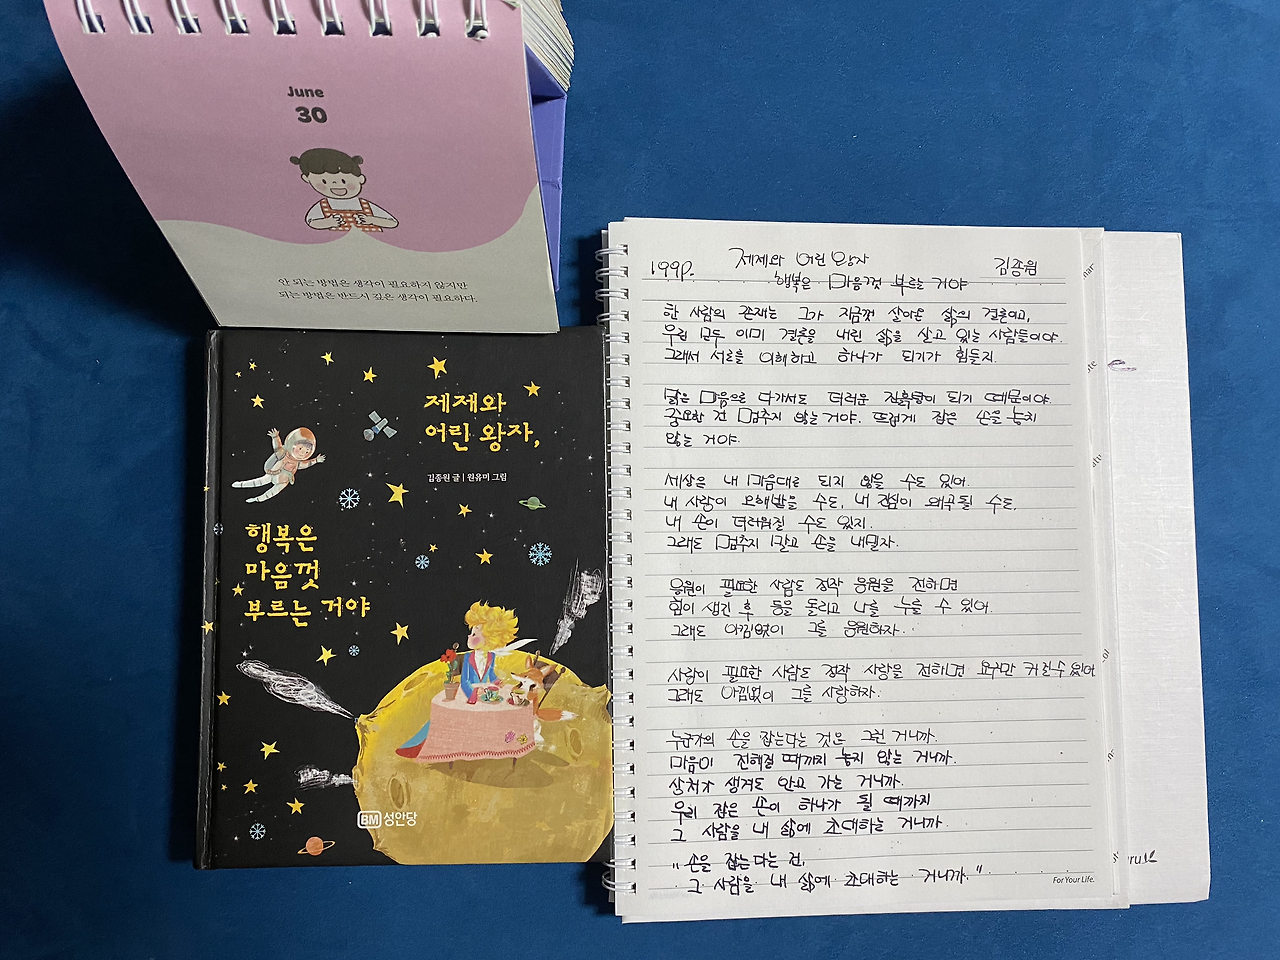 June
30
안 되는 방법은 생각이 필요하지 않지만
되는 방법은 반드시 깊은 생각이 필요하다.
제제와
어린 왕자,
김종원 글 | 원유미 그림
행복은
마음껏
부르는 거야
BM 성안당
199P. 제제와 어린 왕자 김종원
행복은 마음껏 부르는 거야
한 사람의 존재는 그가 지금껏 살아온 삶의 결론이고,
우린 모두 이미 결론을 내린 삶을 살고 있는 사람들이야.
그래서 서로를 이해하고 하나가 되기가 힘들지.
맑은 마음으로 다가서도 더러운 진흙탕이 되기 때문이야.
중요한 건 멈추지 않는 거야. 뜨겁게 잡은 손을 놓지
않는 거야.
세상은 내 마음대로 되지 않을 수도 있어.
내 사랑이 오해받을 수도, 내 진심이 왜곡될 수도,
내 손이 더러워질 수도 있지.
그래도 멈추지 말고 손을 내밀자.
응원이 필요한 사람도 정작 응원을 전하면
힘이 생긴 후 등을 돌리고 나를 누를 수 있어.
그래도 아낌없이 그를 응원하자.
사랑이 필요한 사람도 정작 사랑을 전하면 요구만 커질 수 있어
그래도 아낌없이 그를 사랑하자.
누군가의 손을 잡는다는 것은 그런 거니까.
마음이 전해질 때까지 놓지 않는 거니까.
상처가 생겨도 안고 가는 거니까.
우리 잡은 손이 하나가 될 때까지
그 사람을 내 삶에 초대하는 거니까.
"손을 잡는다는 건,
그 사람을 내 삶에 초대하는 거니까."
For Your Life.